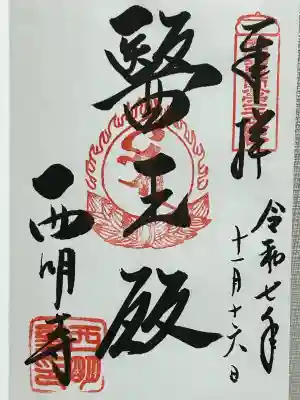 奉拝
令和七年
十一月十六日
醫王殿
西明寺